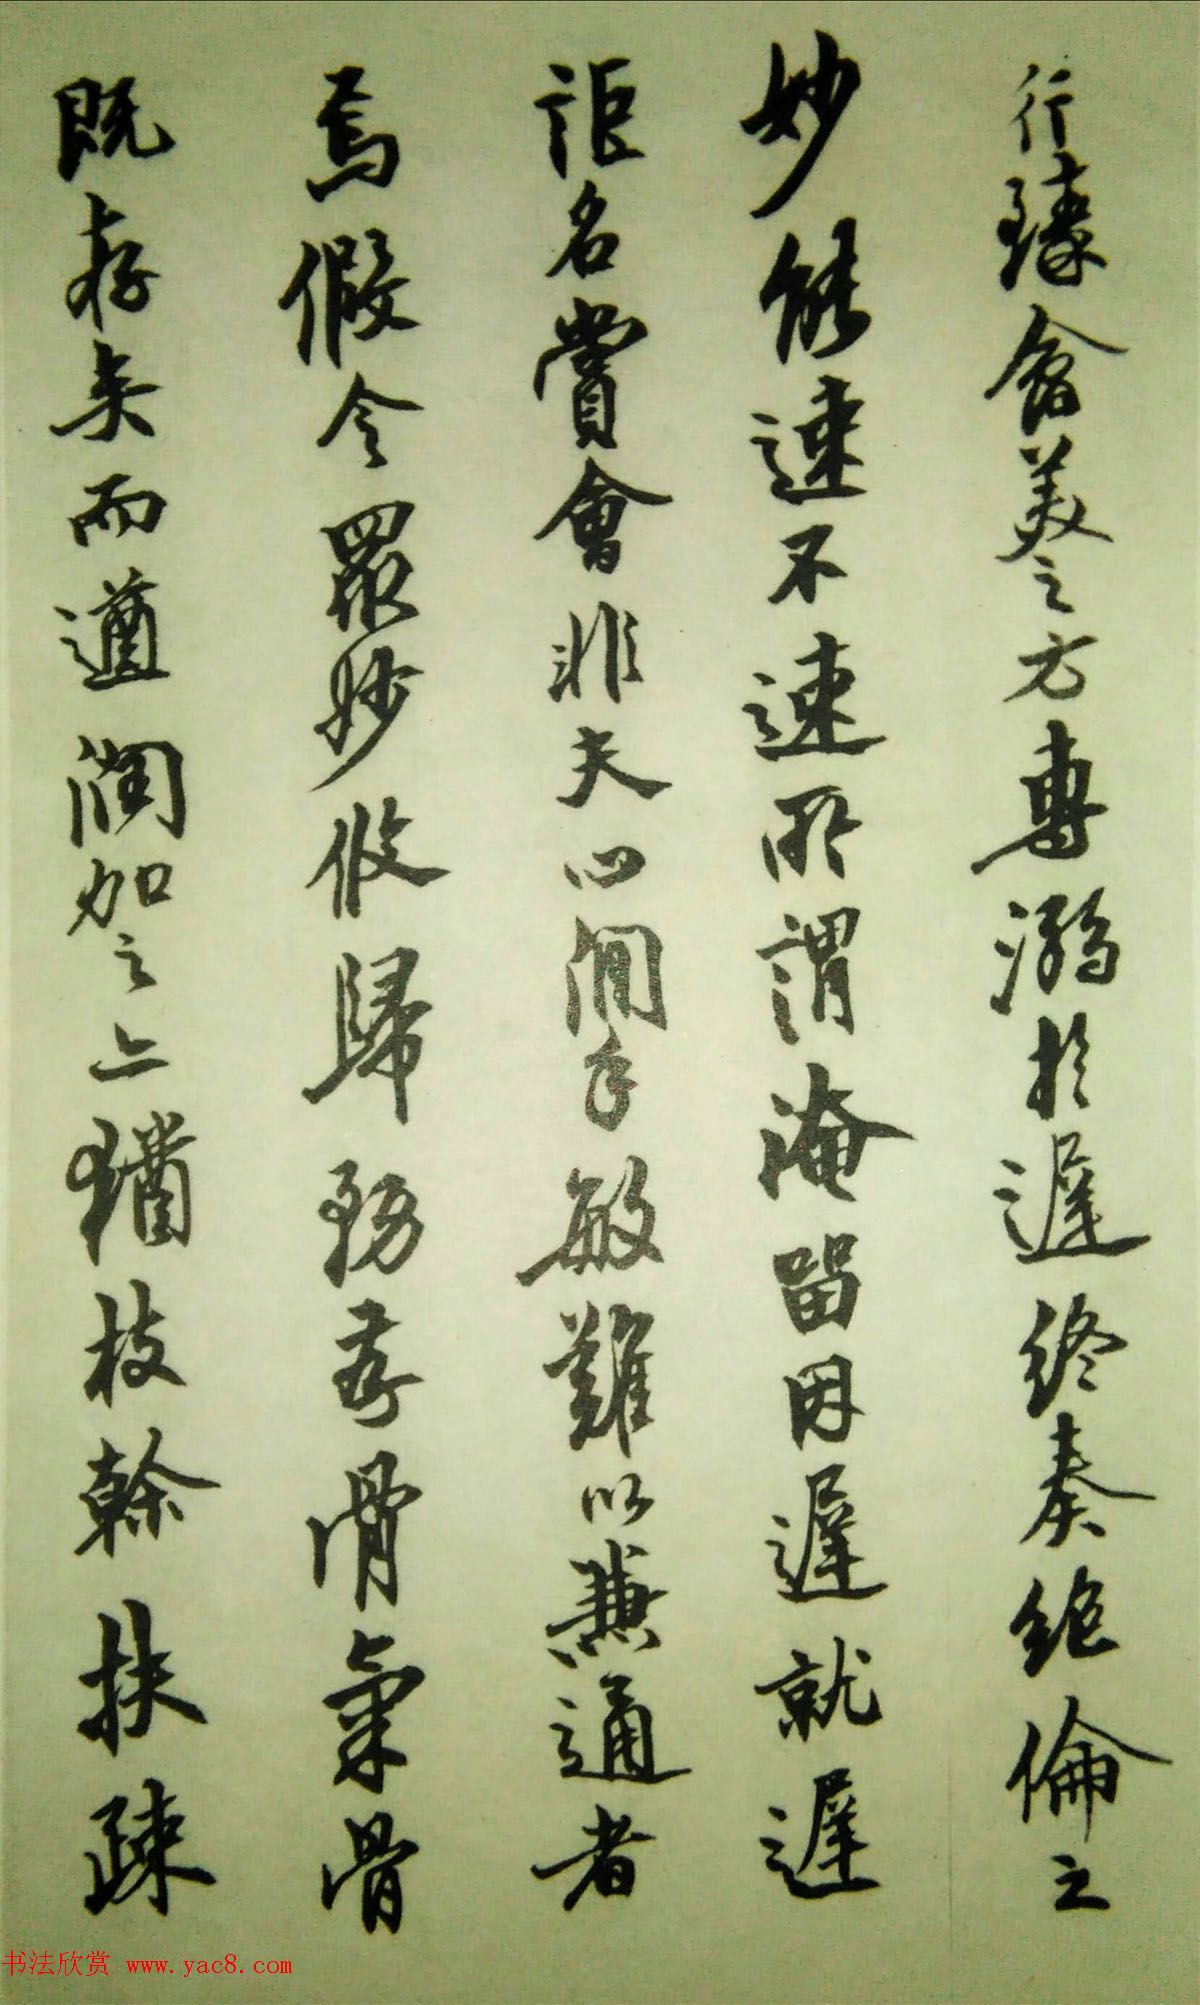 行臻會美之方專溺於遲終奏絕倫之
妙能速不速所謂淹留因遲就遲
詎名賞會非夫心閑手敏難以兼通者
焉假令眾妙攸歸務存骨氣骨
既存矣而遒潤加之亦猶枝幹扶疎
书法欣赏 www.yac8.com